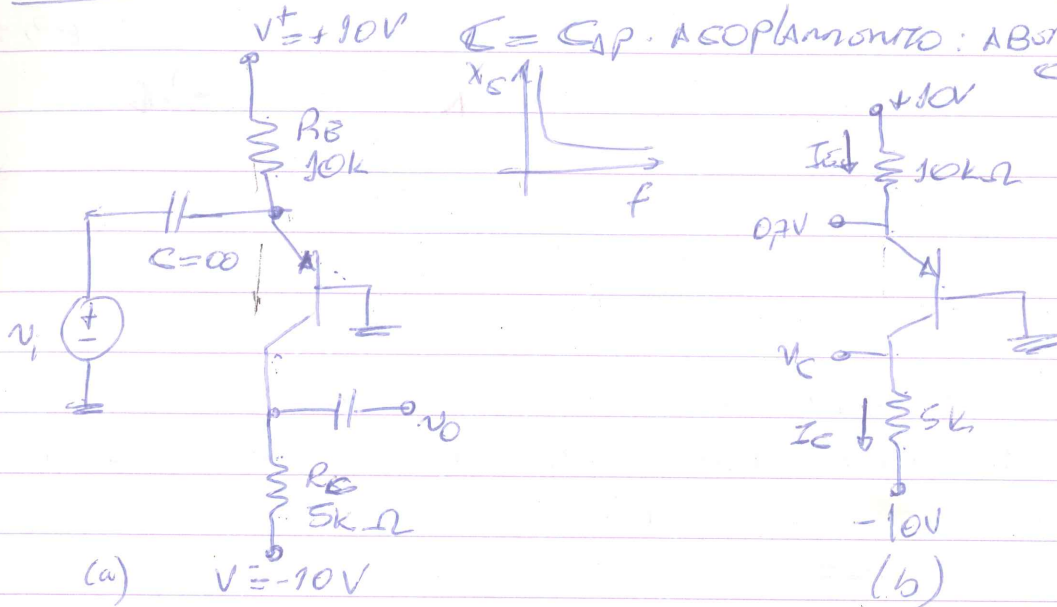 V+=+10V
C = CAP. ACOPLAMONTO: ABOR
Xc
f
RE
10k
C=∞
vi
vo
RC
5kΩ
V-=-10V
(a)
+10V
IE
10kΩ
0,7V
vC
IC
5k
-10V
(b)